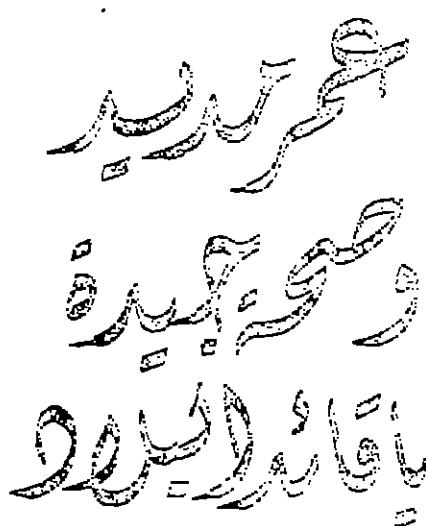 عمر مديد
وصحة جيدة
يا قائد البلاد